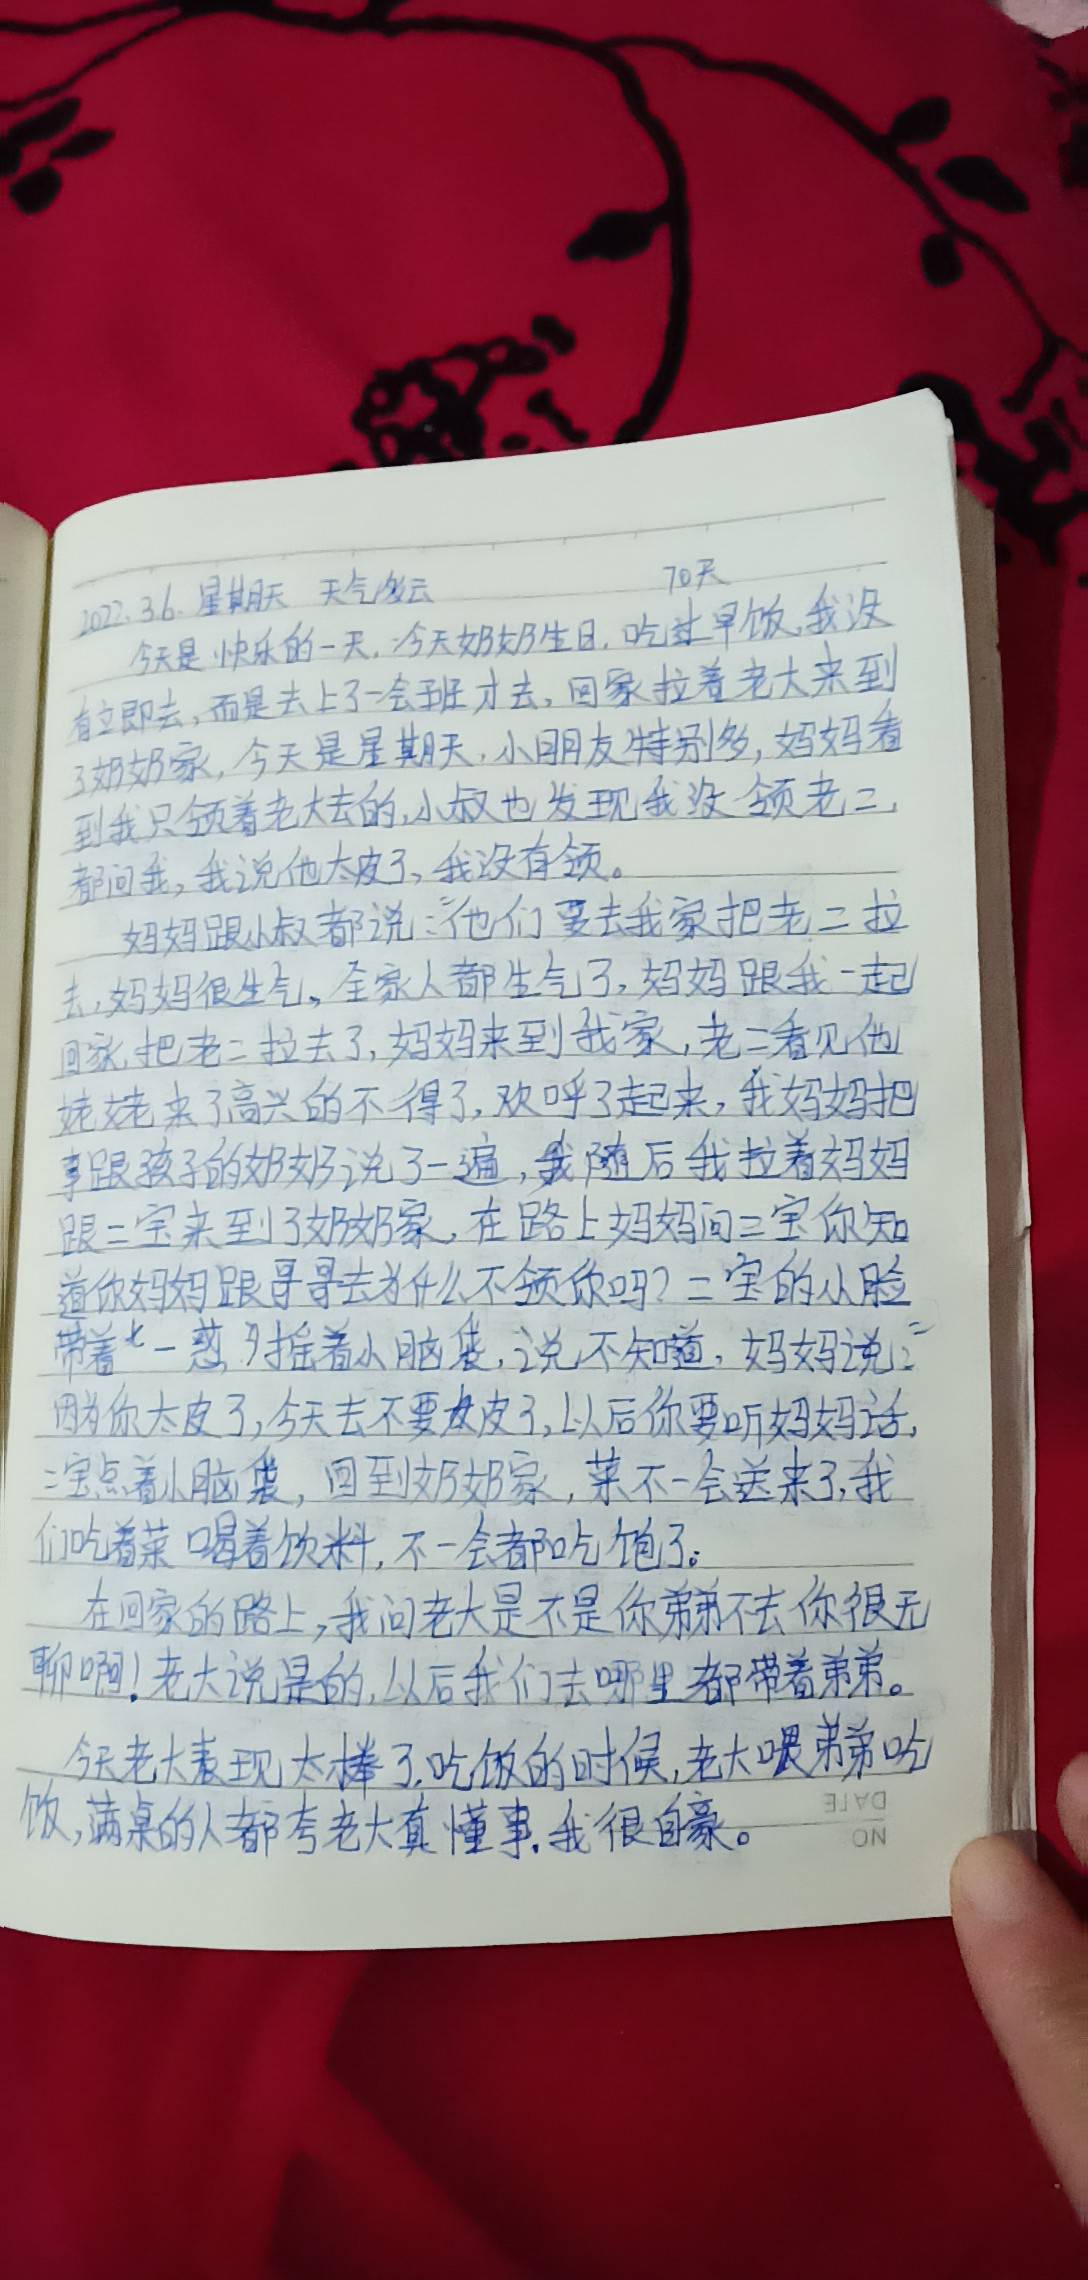 2022.3.6. 星期天 天气多云 70天
今天是快乐的一天,今天奶奶生日,吃过早饭,我没
有立即去,而是去上了一会班才去,回家拉着老大来到
了奶奶家,今天是星期天,小朋友特别多,妈妈看
到我只领着老大去的,小叔也发现我没领老二,
都问我,我说他太皮了,我没有领。
妈妈跟小叔都说:他们要去我家把老二拉
去,妈妈很生气。全家人都生气了,妈妈跟我一起
回家,把老二拉去了,妈妈来到我家,老二看见他
姥姥来了高兴的不得了,欢呼了起来,我妈妈把
事跟孩子的奶奶说了一遍,随后我拉着妈妈
跟二宝来到了奶奶家,在路上妈妈问二宝你知
道你妈妈跟哥哥去为什么不领你吗?二宝的小脸
带着一惹,摇着小脑袋,说不知道,妈妈说:
因为你太皮了,今天去不要太皮了,以后你要听妈妈话,
二宝点着小脑袋,回到奶奶家,菜不一会送来了,我
们吃着菜喝着饮料,不一会都吃饱了。
在回家的路上,我问老大是不是你弟弟不去你很无
聊啊!老大说是的,以后我们去哪里都带着弟弟。
今天老大表现太棒了.吃饭的时候,老大喂弟弟吃
饭,满桌的人都夸老大真懂事.我很自豪。
DATE
NO